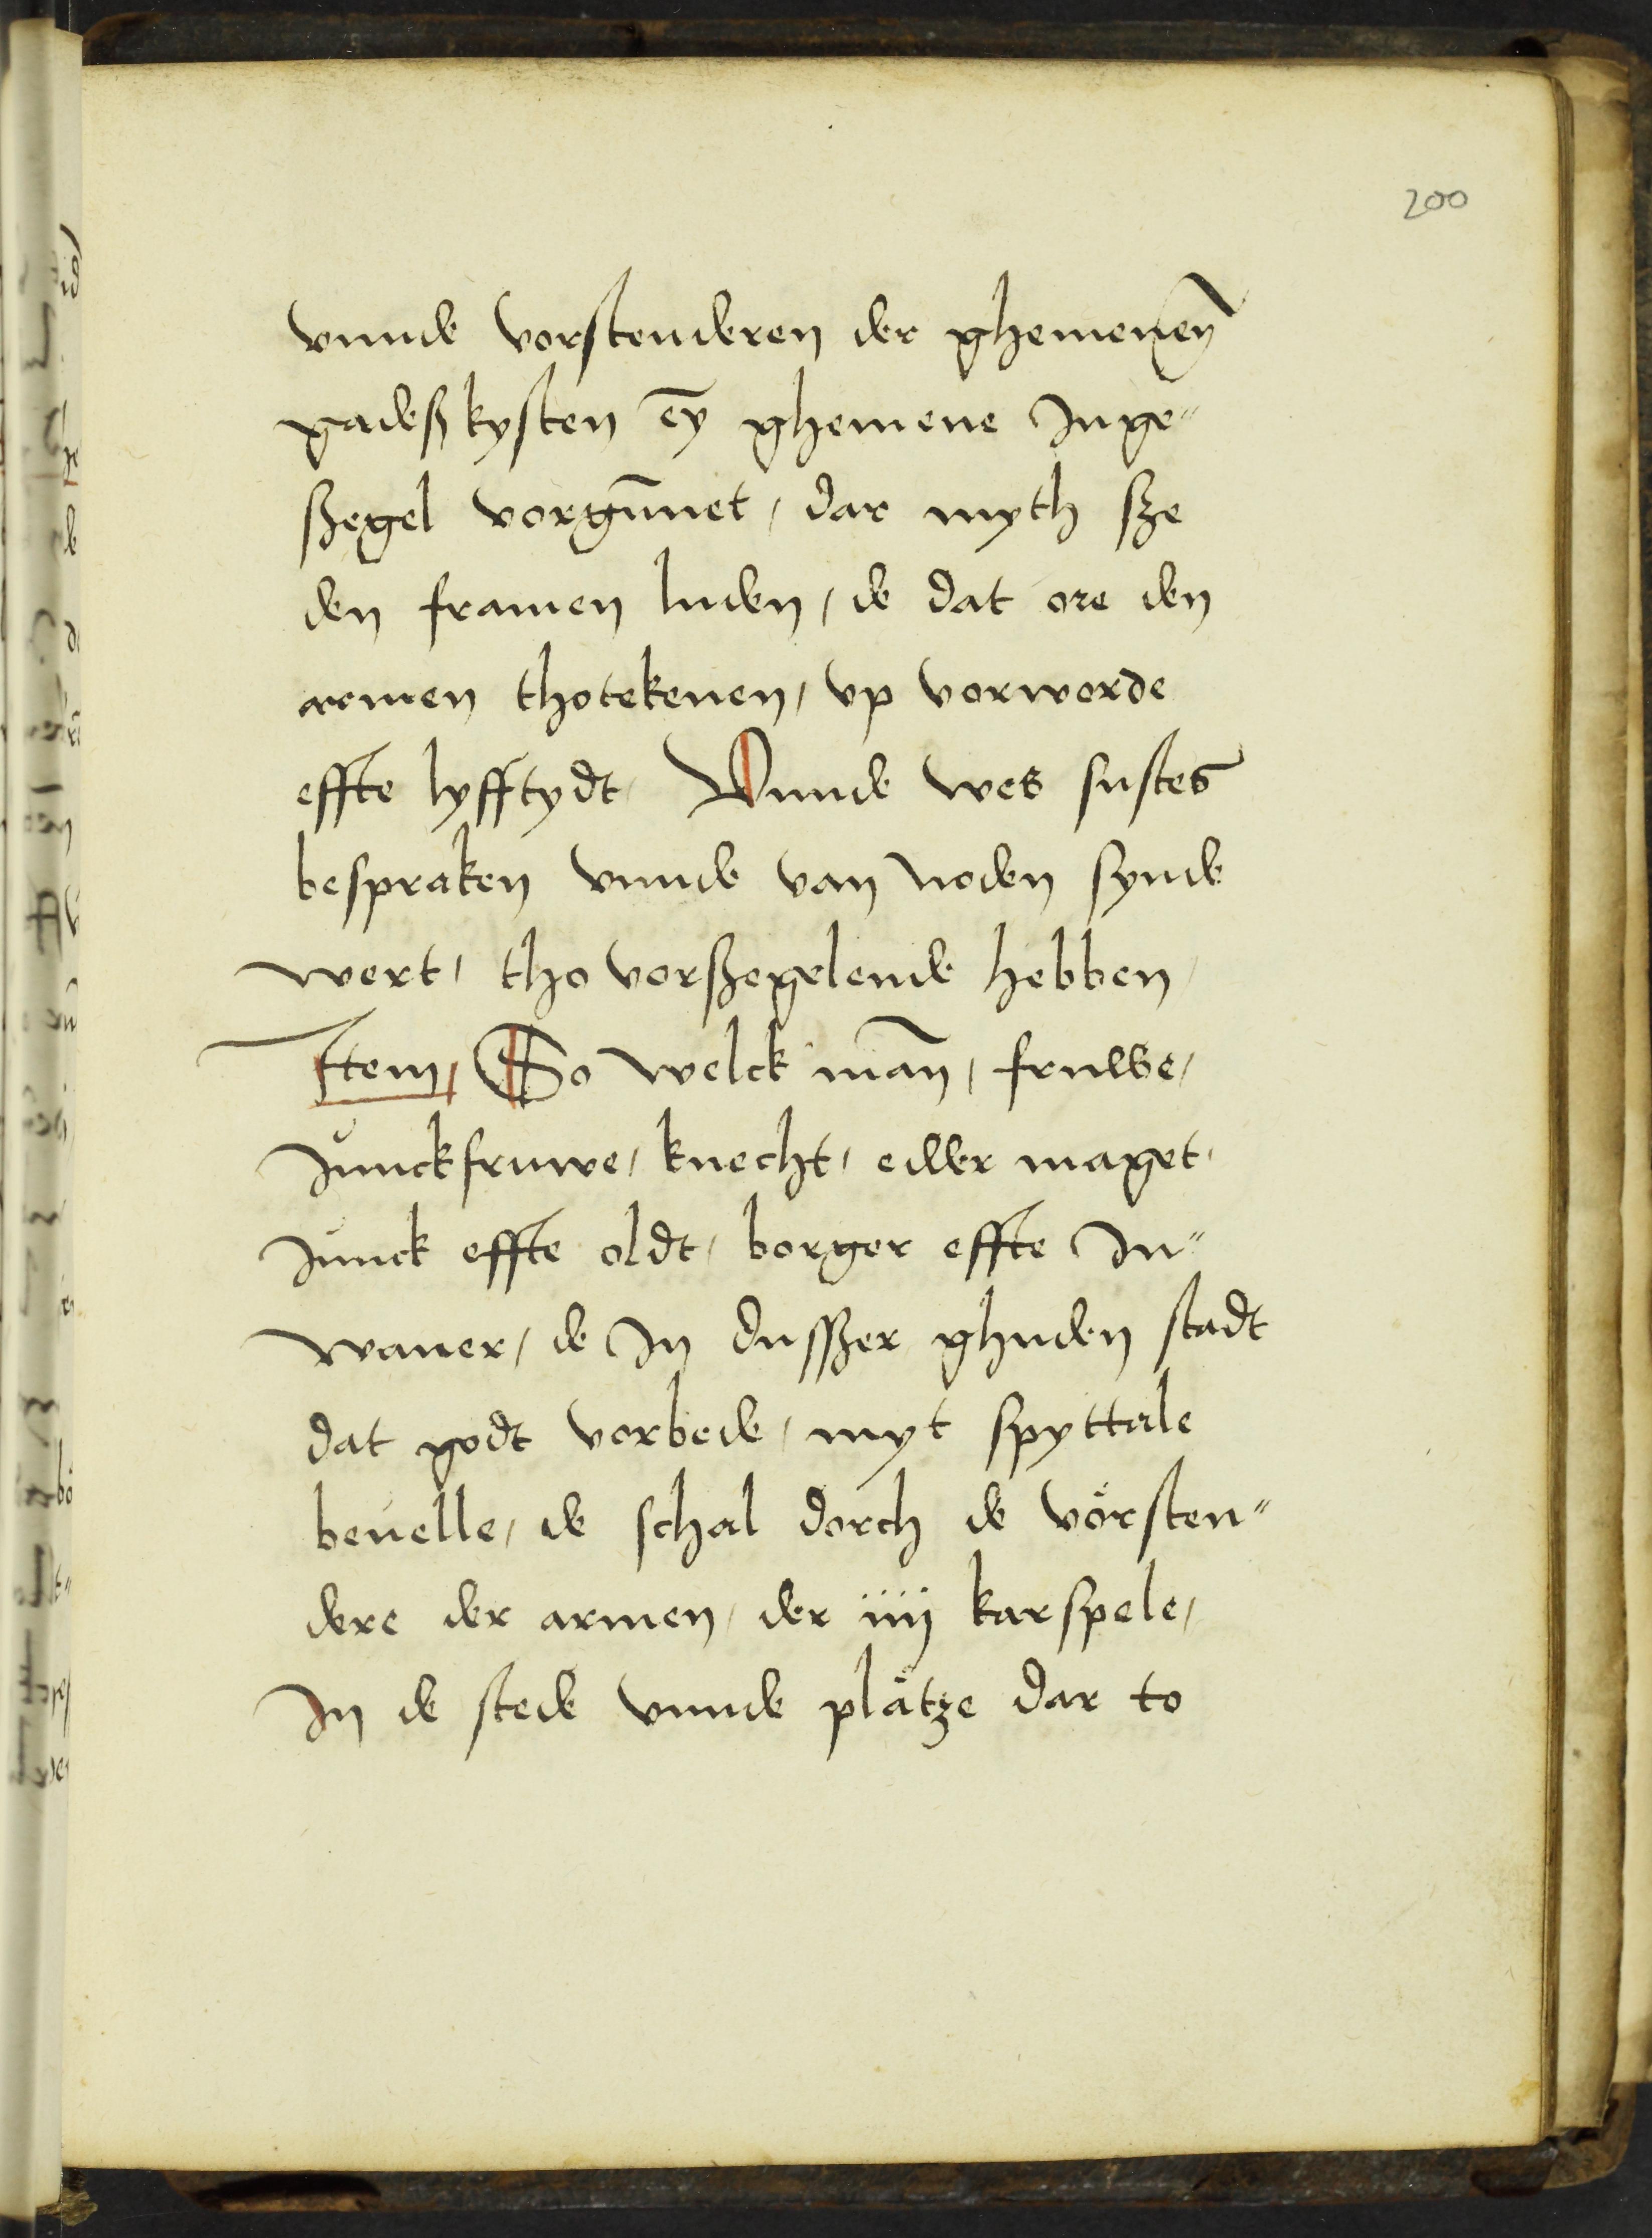 200
vnnde vorstenderen der ghemenen
gadeß kysten eỹ ghemene Inge"
ßegel vorgūnet, dar myth sze
den framen luden, de dat ore den
armen thotekenen, vp vorworde
effte lyfftydt, Vnnde wes sustes
bespraken vnnde van noden synde
wert, tho vorßegelende hebben,
Item, So welck mañ, fruwe,
Junckfruwe, knecht, edder maget,
Junck effte oldt, borger effte In"
waner, de In dusszer ghuden stadt
dat godt vorbede, myt spyttale
beuelle, de schal dorch de vörsten"
dere der armen, der iiij karspele,
In de stede vnnde plåtze dar to